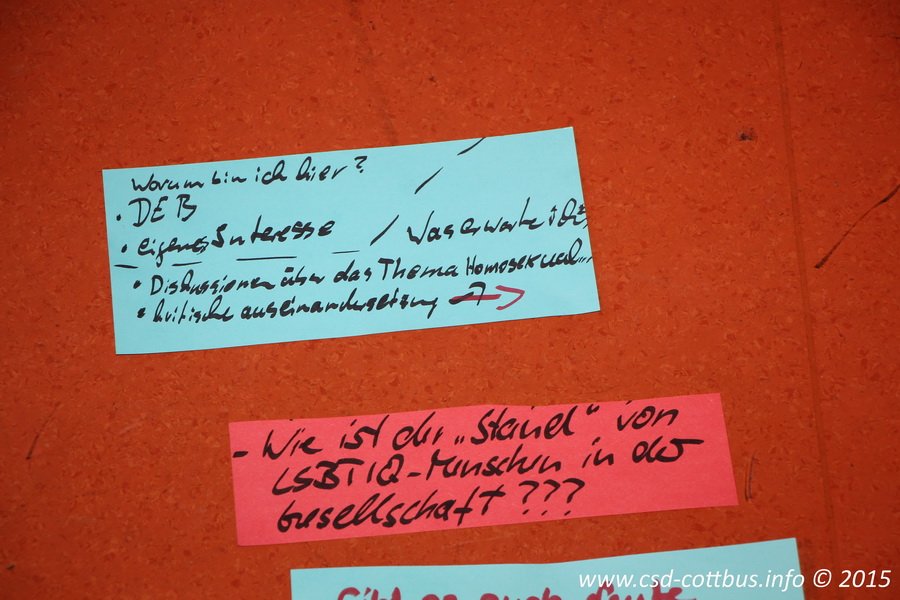 Warum bin ich hier?
• DEB
• eigenes Interesse / Was erwarte ich?
• Diskussionen über das Thema Homosexual...
• kritische auseinandersetzung →
- Wie ist der „Stand" von
LSBTIQ-Menschen in der
Gesellschaft???
Gibt es auch heute
www.csd-cottbus.info © 2015